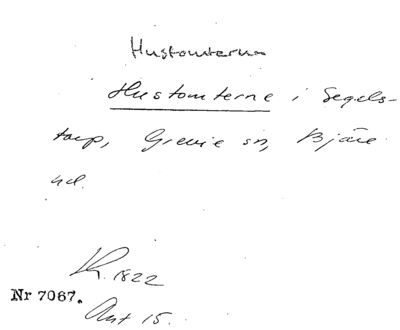 Hustomterna
Hustomterne i Segels-
torp, Grevie sn, Bjäre
hd.
K. 1822
Nr 7067.
Ant 15.